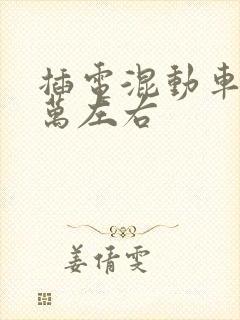 插電混動車
萬左右
姜倩雯